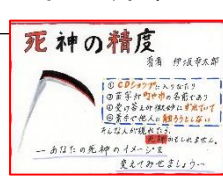 死神の精度
著者 伊坂幸太郎
① CDショップに入りびたり
② 苗字が町や市の名前であり
③ 受け答えが微妙にずれていて
④ 素手で他人に触ろうとしない
そんな人が現れたら、
死神かもしれません。
—あなたの死神のイメージを
変えてみせましょう—